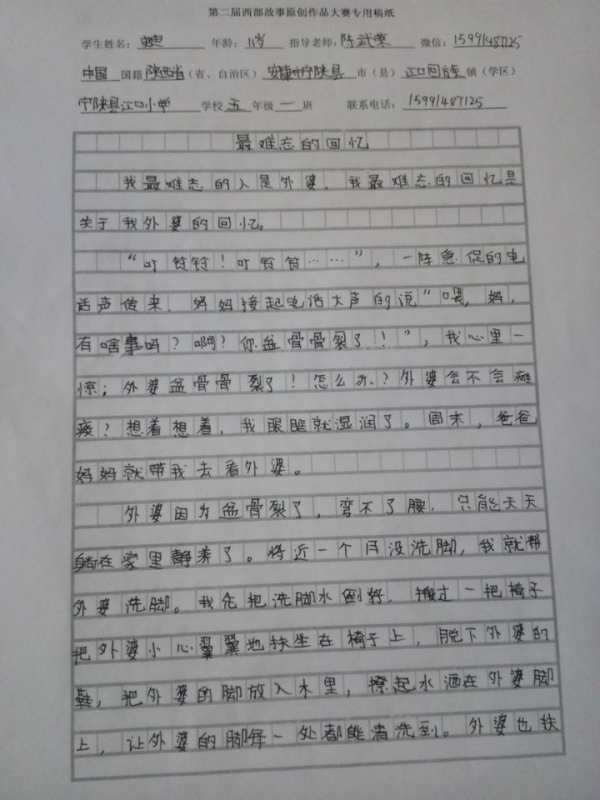 第二届西部故事原创作品大赛专用稿纸
学生姓名： 年龄：11岁 指导老师：陈武荣 微信：15991487125
中国 国籍 陕西省（省、自治区）安康市宁陕县 市（县）江口回族 镇（学区）
宁陕县江口小学 学校 五 年级 一 班 联系电话：15991487125
最难忘的回忆
我最难忘的人是外婆，我最难忘的回忆是
关于我外婆的回忆。
“叮铃铃！叮铃铃……”，一阵急促的电
话声传来，妈妈接起电话大声的说“喂，妈，
有啥事吗？啊？你盆骨骨裂了！”，我心里一
惊；外婆盆骨骨裂了！怎么办？外婆会不会瘫
痪？想着想着，我眼眶就湿润了。周末，爸爸
妈妈就带我去看外婆。
外婆因为盆骨裂了，弯不了腰，只能天天
躺在家里静养了。将近一个月没洗脚，我就帮
外婆洗脚。我先把洗脚水倒好，搬过一把椅子
把外婆小心翼翼地扶坐在椅子上，脱下外婆的
鞋，把外婆的脚放入水里，撩起水洒在外婆脚
上，让外婆的脚每一处都能清洗到。外婆也扶